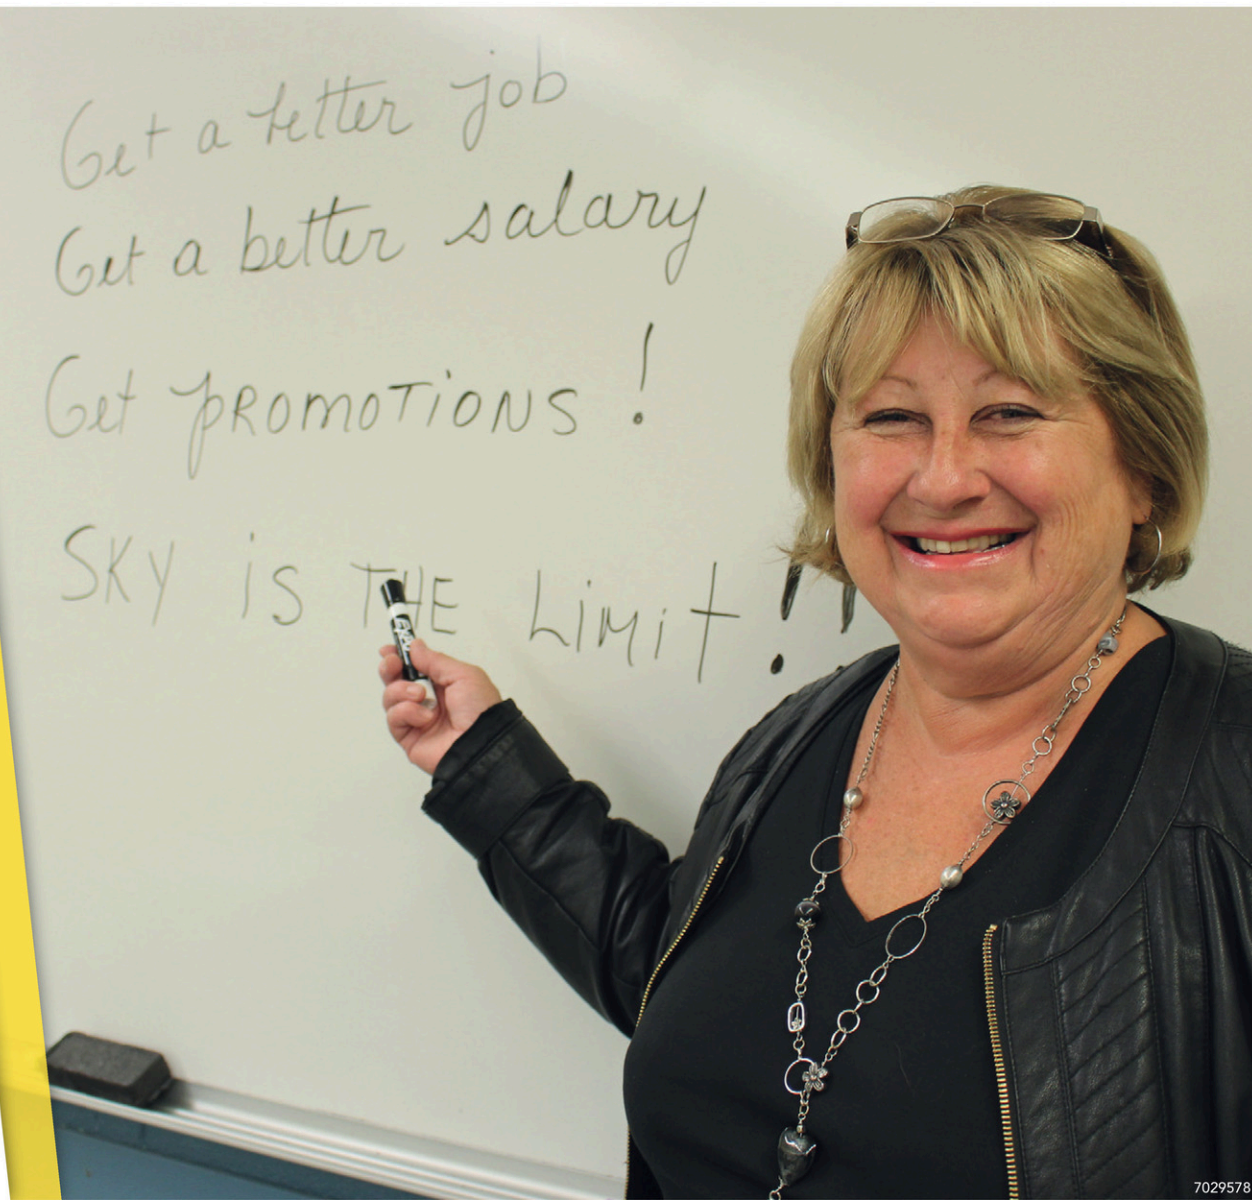 Get a better job
Get a better salary
Get pROMOTiONS !
SKY iS THE LiMit !!
EXPO
7029578